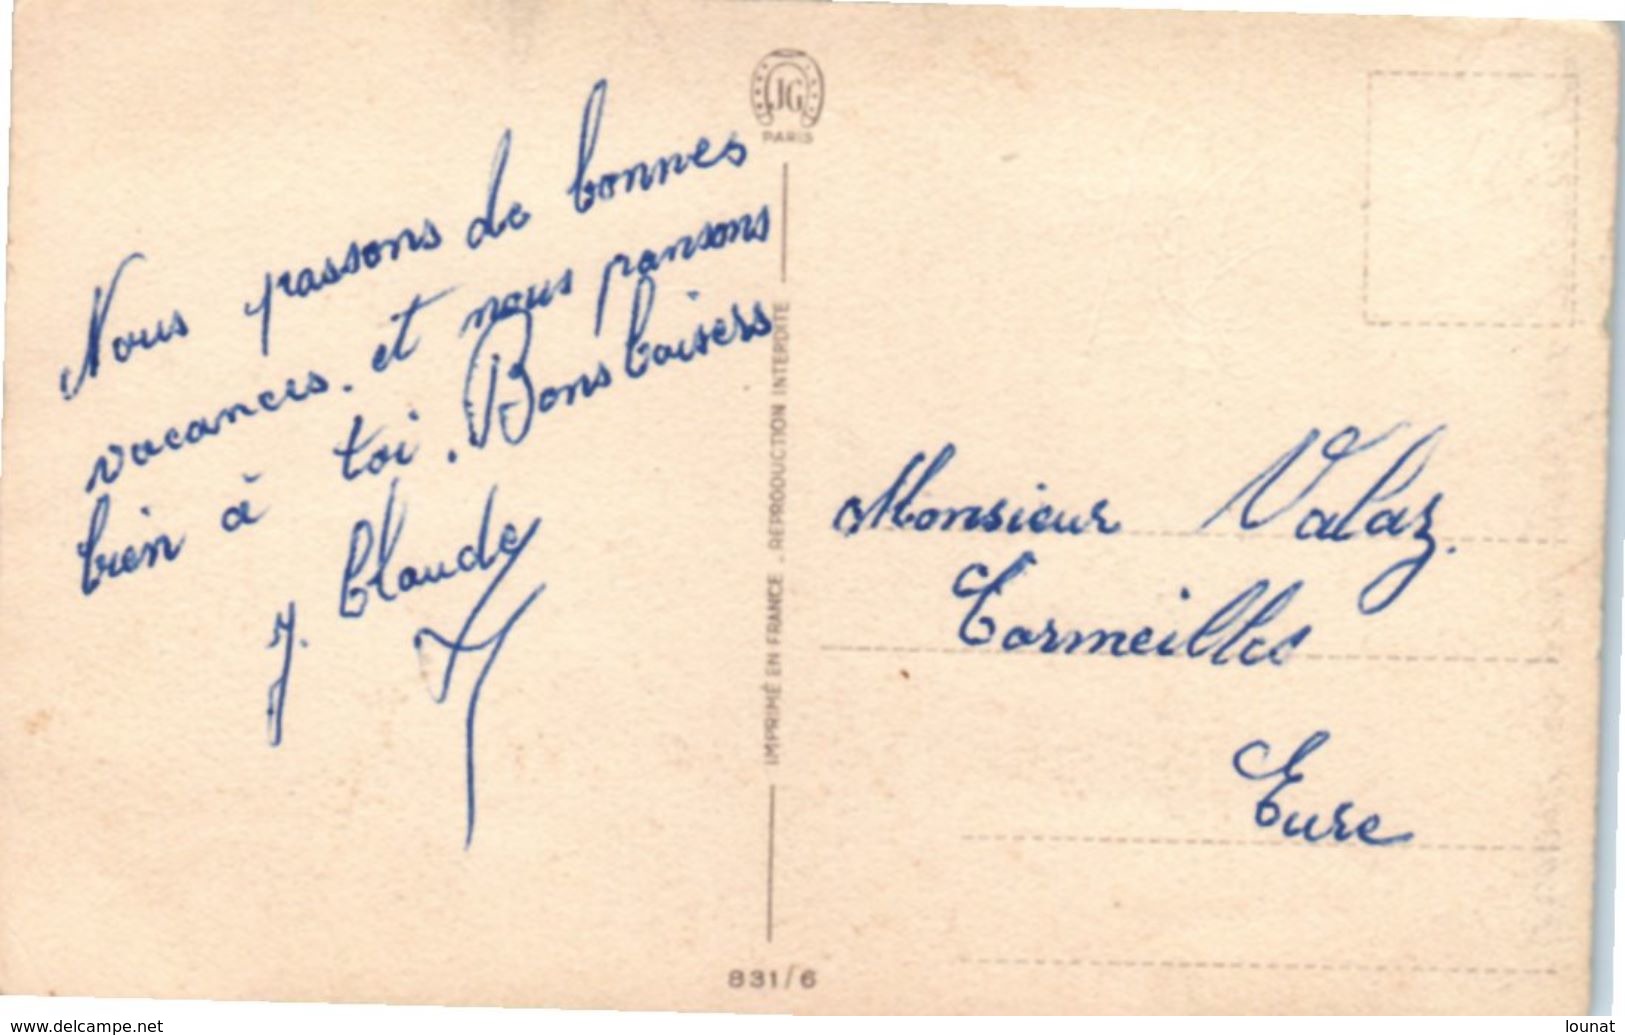 Nous passons de bonnes
vacances. et nous pansons
bien à toi. Bons baisers
J. Claude
JG
PARIS
IMPRIMÉ EN FRANCE . REPRODUCTION INTERDITE
831/6
Monsieur Valaz.
Cormeilles
Eure
www.delcampe.net
lounat